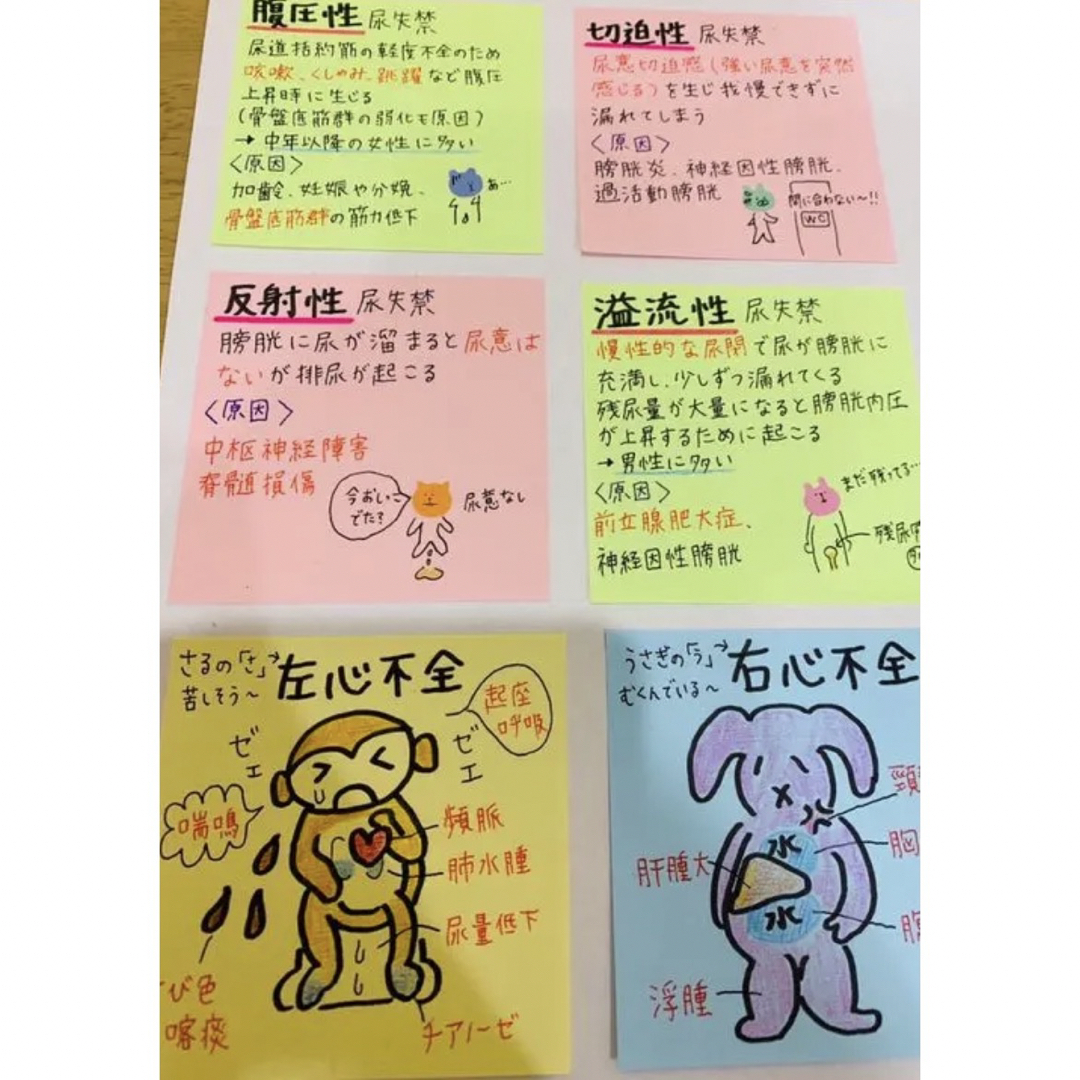 腹圧性 尿失禁
尿道括約筋の軽度不全のため
咳嗽、くしゃみ、跳躍など腹圧
上昇時に生じる
(骨盤底筋群の弱化も原因)
→ 中年以降の女性に多い
<原因>
加齢、妊娠や分娩、
骨盤底筋群の筋力低下
あ…
切迫性 尿失禁
尿意切迫感(強い尿意を突然
感じる)を生じ我慢できずに
漏れてしまう
<原因>
膀胱炎、神経因性膀胱、
過活動膀胱
間に合わない〜!!
WC
反射性 尿失禁
膀胱に尿が溜まると尿意は
ないが排尿が起こる
<原因>
中枢神経障害
脊髄損傷
今おしっこ
でた?
尿意なし
溢流性 尿失禁
慢性的な尿閉で尿が膀胱に
充満し、少しずつ漏れてくる
残尿量が大量になると膀胱内圧
が上昇するために起こる
→男性に多い
<原因>
前立腺肥大症、
神経因性膀胱
まだ残ってる…
残尿
さるの「さ」→
苦しそう〜
左心不全
起座
呼吸
ゼエ
ゼエ
喘鳴
頻脈
肺水腫
尿量低下
び色
喀痰
チアノーゼ
うさぎの「う」→
むくんでいる〜
右心不全
頸
水
胸
肝腫大
水
腹
浮腫